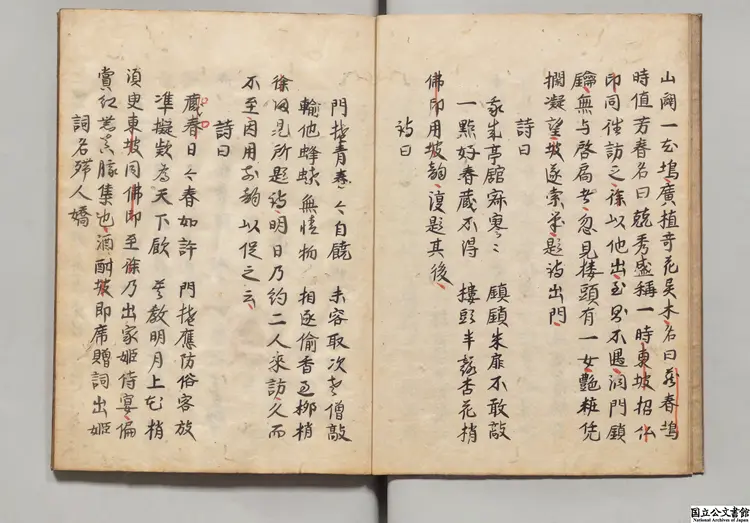 山闢一花塢廣植奇花異木名曰蔵春塢
時值芳春名曰競秀盛稱一時東坡招仏
印同往訪之徐以他出至則不遇洞門鎖
鑰無与啓扃者忽見楼頭有一女艶粧凭
欄凝望坡遂索筆題詩出門
詩曰
我来亭館寂寒〻 鎖鎖朱扉不敢敲
一點好春蔵不得 楼頭半露杏花梢
佛印用坡韻復題其後
詩曰
門掩青春〻自饒 未容取次老僧敲
輸他蜂蝶無情物 相逐偷香過柳梢
徐回見所題詩明日乃約二人来訪久而
不至因用前韻以促之云
詩曰
蔵春日〻春如許 門掩應防俗客放
準擬款為天下 莫敎明月上花梢
湏臾東坡同佛印至徐乃出家姬侍宴偏
賞紅集也酒酣坡即席贈詞出姬
詞名殢人嬌
国立公文書館
National Archives of Japan